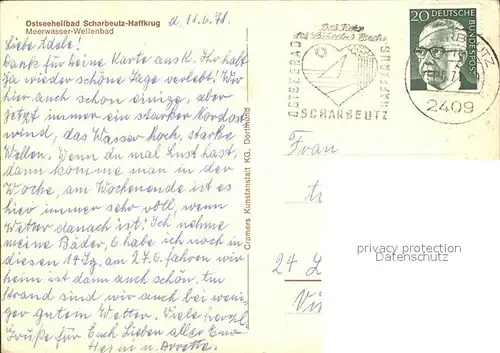 Ostseeheilbad Scharbeutz-Haffkrug
Meerwasser-Wellenbad
d. 11.6.71.
Liebe Adele!
Dank für Deine Karte aus K. Ihr habt
ja wieder schöne Tage verlebt! Wir
hier auch schon einige, aber
jetzt immer ein starker Nordost
wind, das Wasser hoch, starke
Wellen. Wenn du mal Lust hast,
dann komme man in der
Woche, am Wochenende ist es
hier immer sehr voll, wenn
Wetter danach ist! Ich nehme
meine Bäder, 6 habe ich noch in
diesen 14 Tg. am 27.6. fahren wir
heim ist dann auch schön. Am
Strand sind wir auch bei weni-
ger gutem Wetter. Viele herzl.
Grüße für Euch Lieben aller Eure
Cramers Kunstanstalt KG, Dortmund
Das Herz
der Lübecker Bucht
OSTSEEBAD
SCHARBEUTZ
HAFFKRUG
2409
20
DEUTSCHE BUNDESPOST
Frau
24 L
privacy protection
Datenschutz